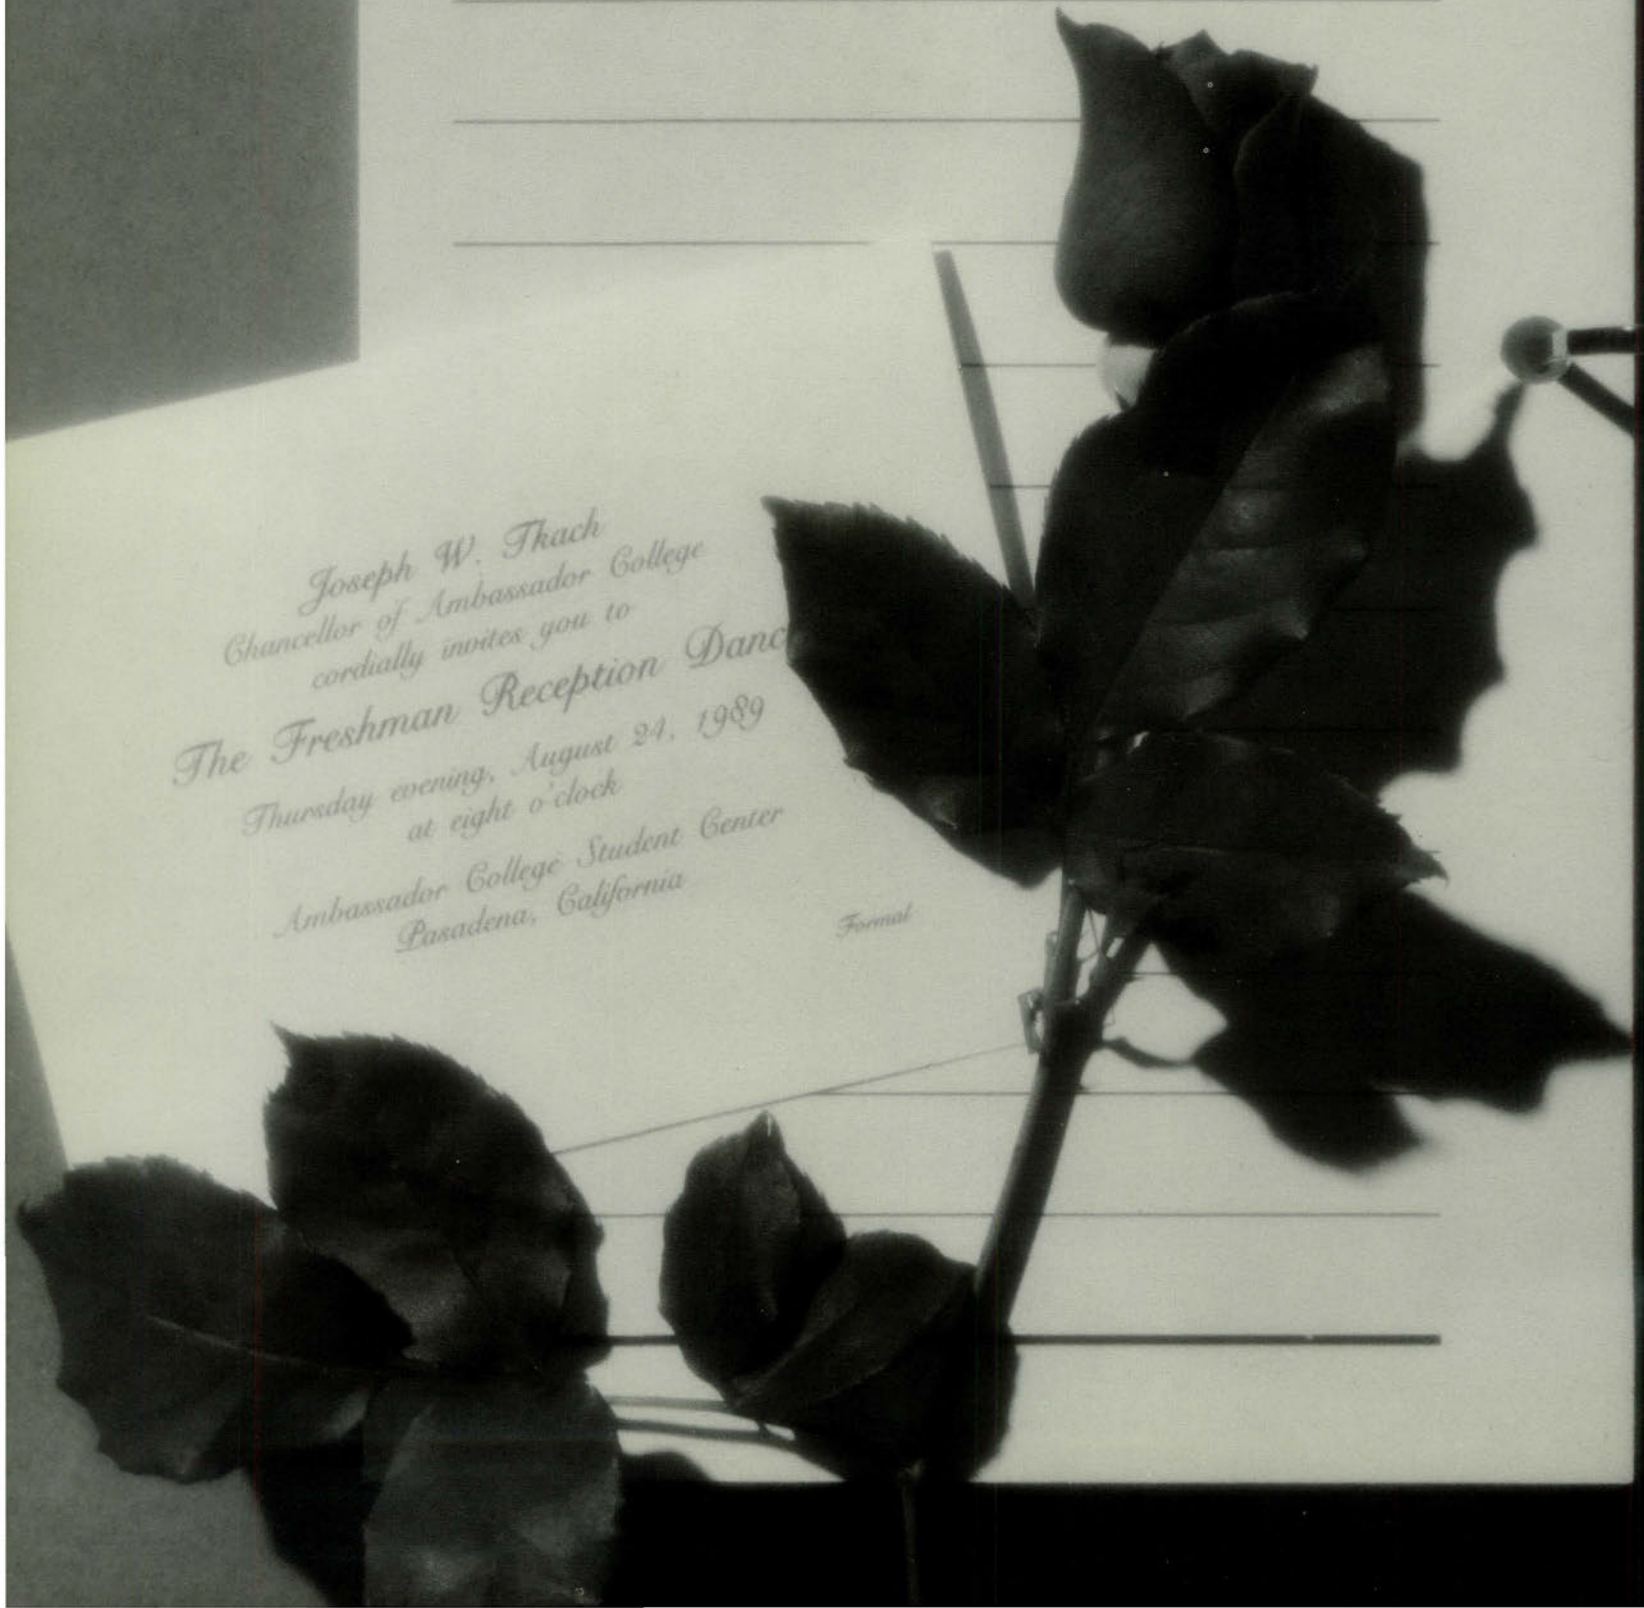 Joseph W. Tkach
Chancellor of Ambassador College
cordially invites you to
The Freshman Reception Danc
Thursday evening, August 24, 1989
at eight o'clock
Ambassador College Student Center
Pasadena, California
Formal